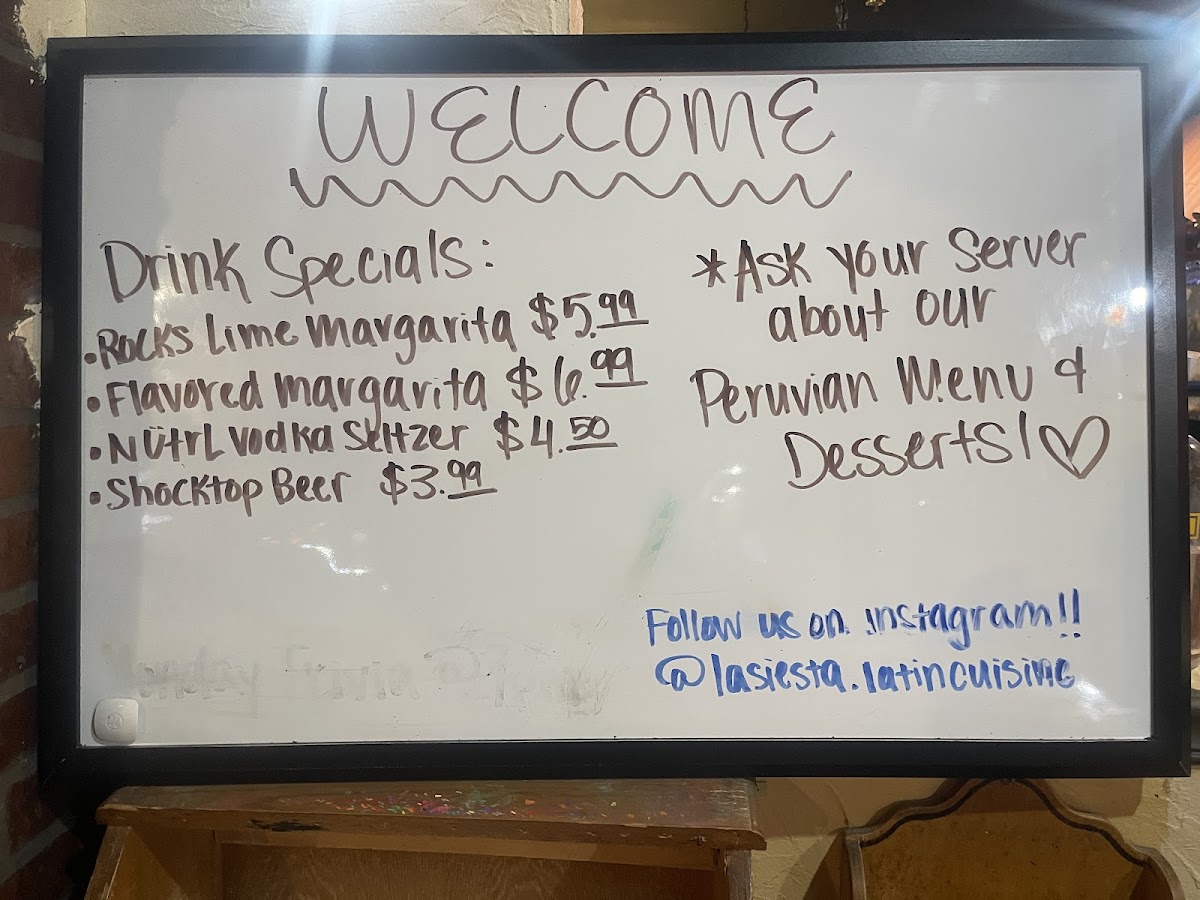 WELCOME
Drink Specials:
•Rocks Lime Margarita $5.99
•Flavored Margarita $6.99
•NÜTRL Vodka Seltzer $4.50
•Shocktop Beer $3.99
*Ask your Server
about our
Peruvian Menu &
Desserts!♡
Follow us on Instagram!!
@lasiesta.latincuisine